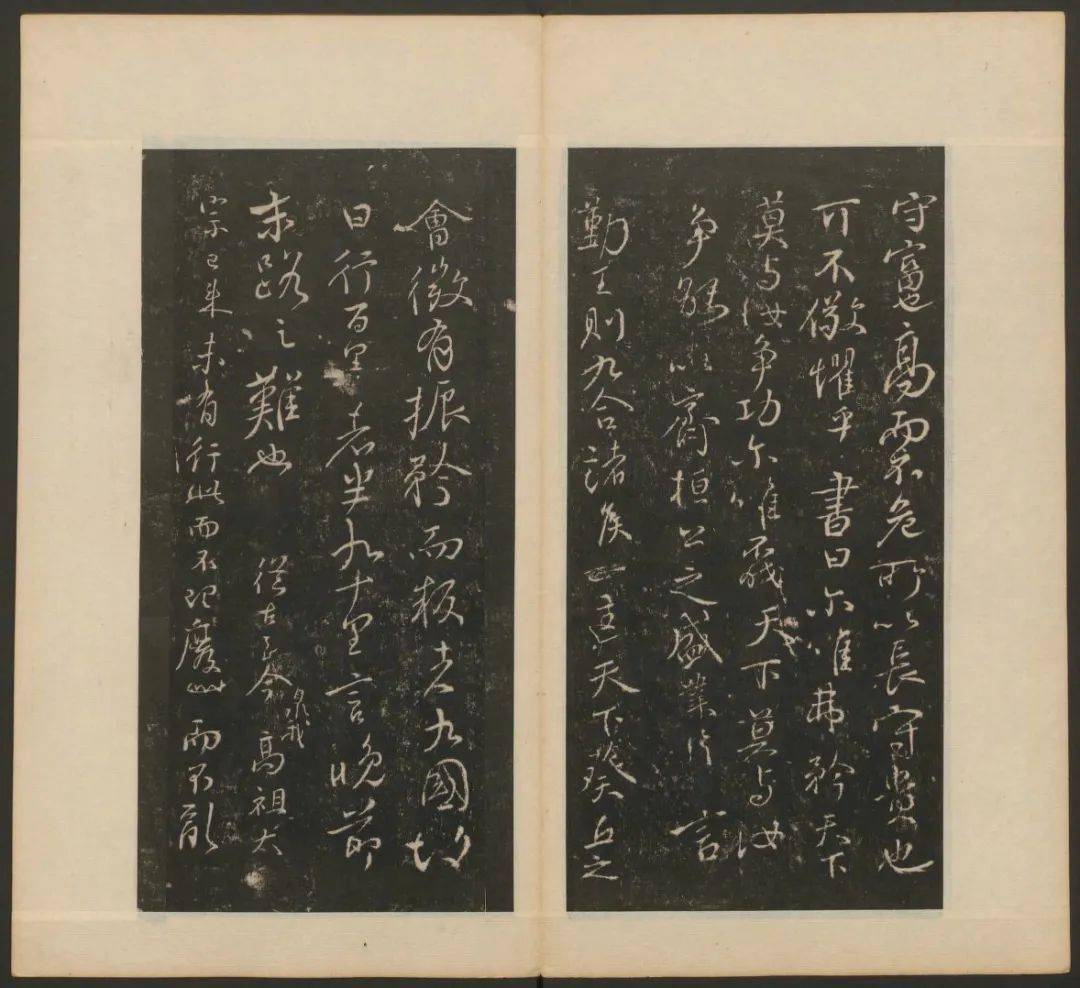 守富也高而不危所以長守貴也
可不儆懼乎書曰尔唯弗矜天下
莫与汝争功尔唯不伐天下莫与汝
争能以齊桓公之盛業片言
勤王則九合諸侯一匡天下葵丘之
會微有振矜而叛者九國故
曰行百里者半九十里言晚節
末路之難也從古至今臮我高祖太
宗已來未有行此而不理廢此而不亂